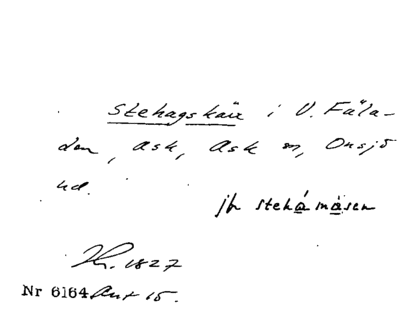 Stehagskäre i V. Fäla-
den, Ask, Ask sn, Onsjö
hd.
jfr stehåmåsen
Kr. 1827
Nr 6164 Ant 15.